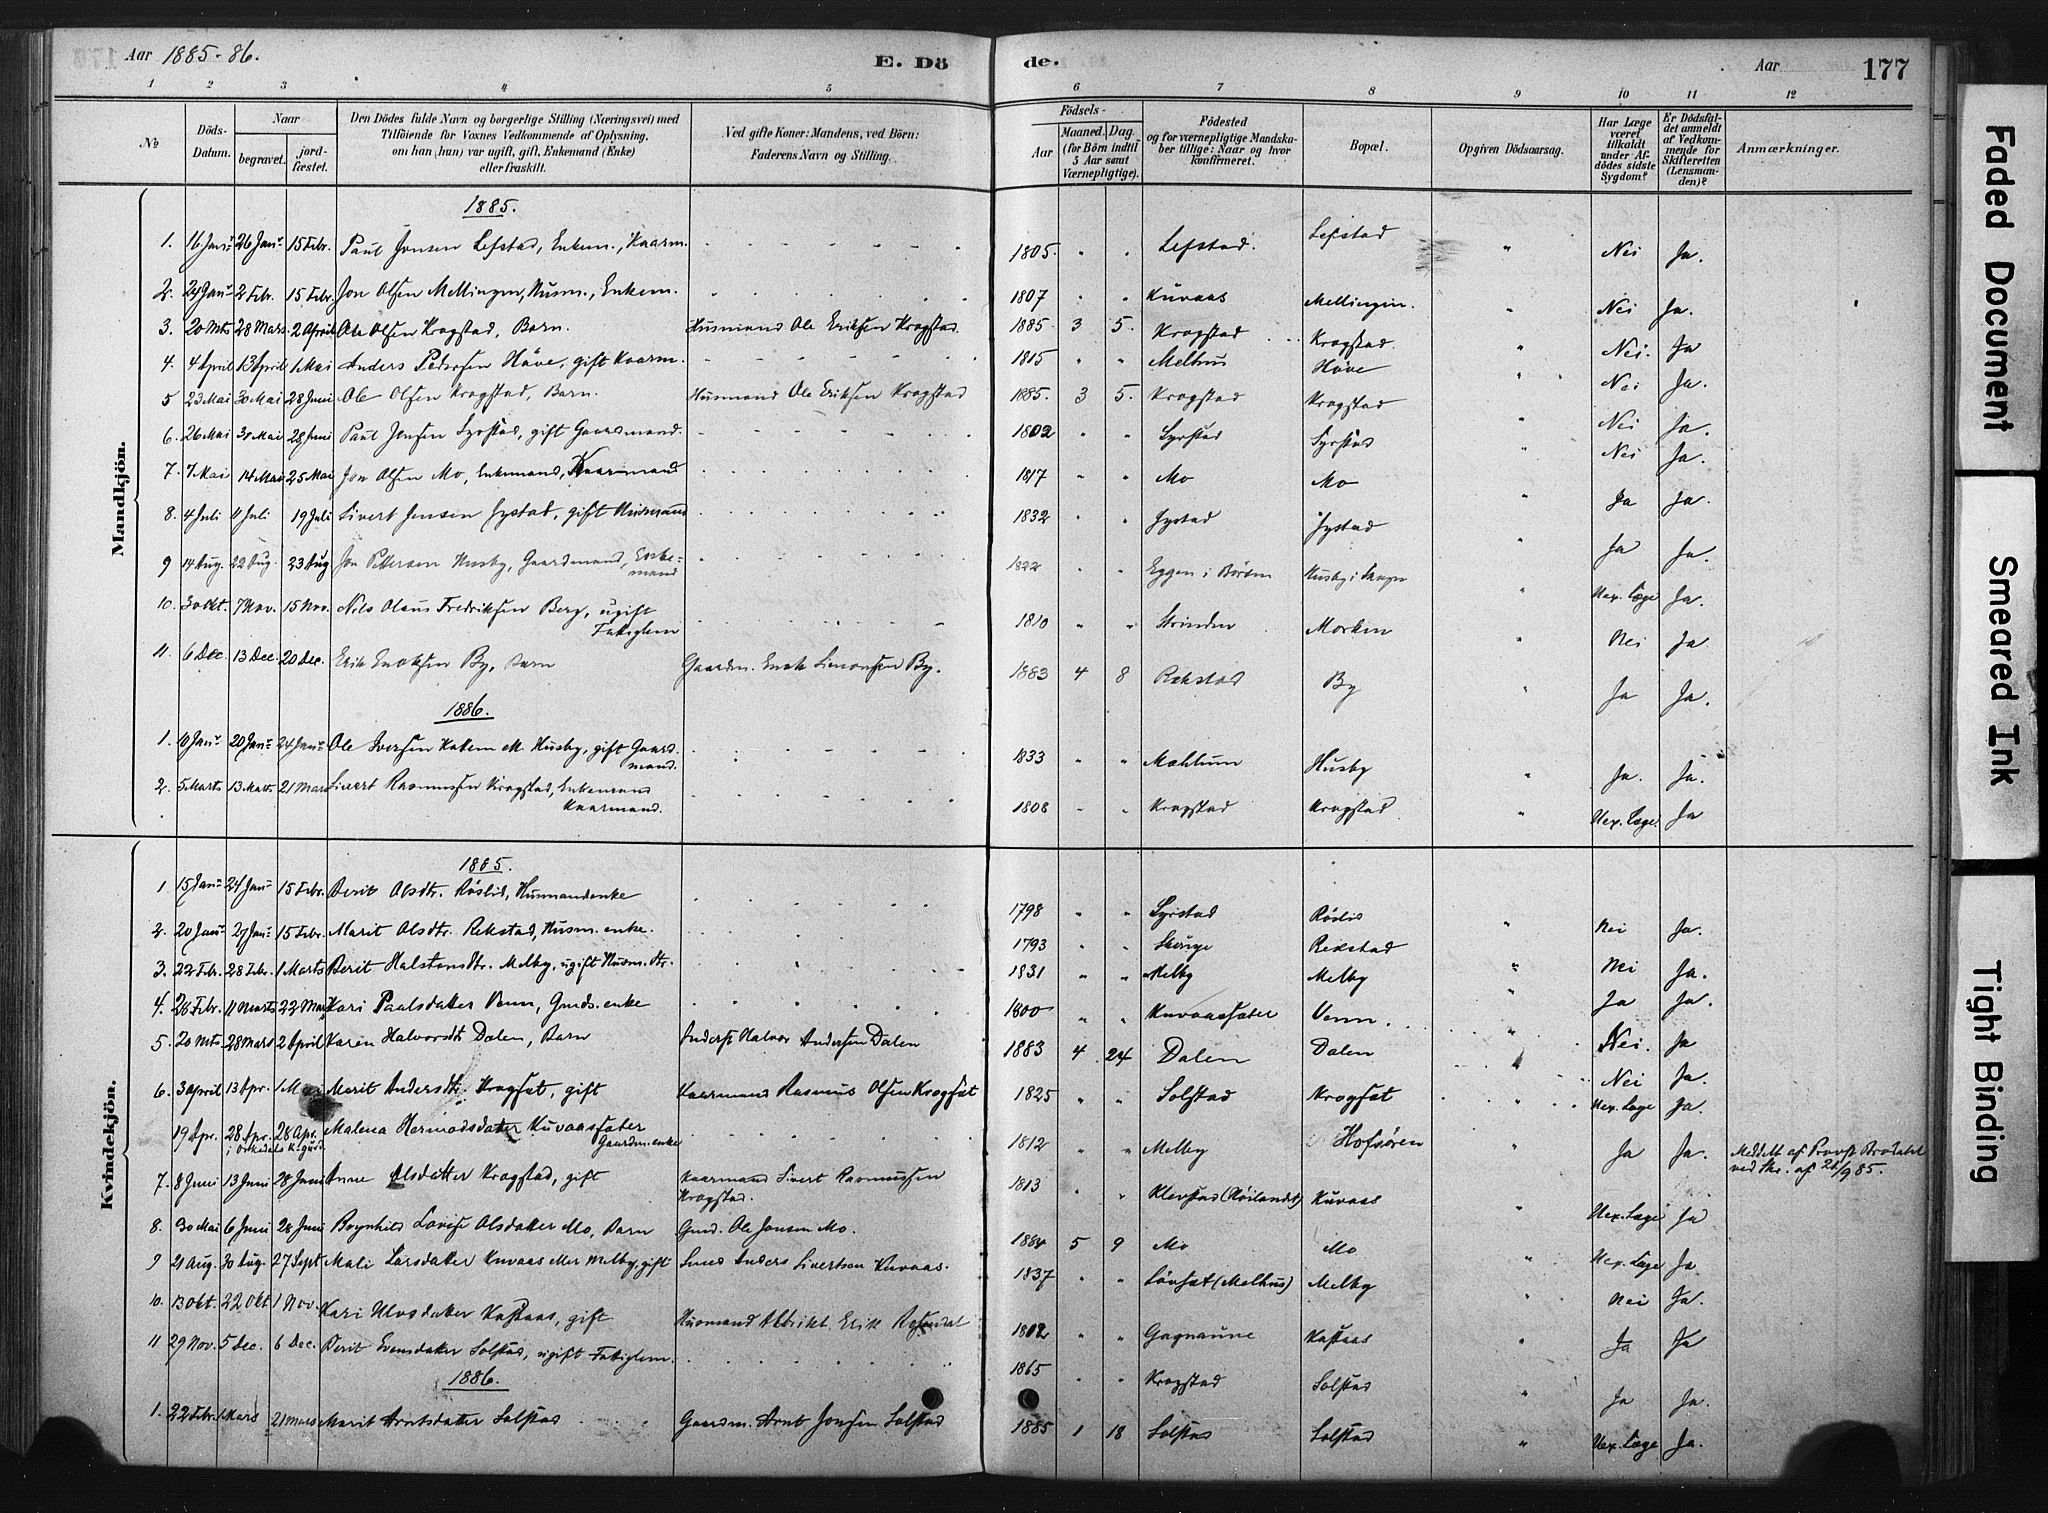 Aar 1885-86.
E. Dö
de.
Aar
177
1 2 3 4 5 6 7 8 9 10 11 12
No
Döds-Datum.
Naar
begravet.
jordfæstet.
Den Dödes fulde Navn og borgerlige Stilling (Næringsvei) med
Tilföiende for Voxnes Vedkommende af Oplysning,
om han (hun) var ugift, gift, Enkemand (Enke)
eller fraskilt.
Ved gifte Koner: Mandens, ved Börn:
Faderens Navn og Stilling.
Födsels-
Aar
Maaned. Dag.
(for Börn indtil
5 Aar samt
Værnepligtige).
Födested
og for værnepligtige Mandska-
ber tillige: Naar og hvor
konfirmeret.
Bopæl.
Opgiven Dödsaarsag.
Har Læge
været
tilkaldt
under Af-
dödes sidste
Sygdom?
Er Dödsfal-
det anmeldt
af Vedkom-
mende for
Skifteretten
(Lensman-
den)?
Anmærkninger.
Mandkjön.
1885.
1. 16 Janr 26 Janr 15 Febr. Paul Jonsen Lefstad, Enkem., Kaarm. 1805. " " Lefstad. Lefstad " Nei Ja.
2. 24 Janr 2 Febr. 15 Febr. Jon Olsen Mellingen, Husm., Enkem. 1807 " " Kuvaas Mellingen. " Nei Ja.
3. 20 Mts 28 Mars. 2 April Ole Olsen Krogstad, Barn. Husmand Ole Eriksen Krogstad. 1885 3 5. Krogstad Krogstad. " Nei. Ja
4. 4 April 13 April 1 Mai Anders Pedersen Höve, gift Kaarm. 1815 " " Melhus Höve " Nei Ja.
5 23 Mai 30 Mai 28 Juni Ole Olsen Krogstad, Barn. Husmand Ole Eriksen Krogstad 1885. 3 5. Krogstad Krogstad " Nei Ja.
6. 26 Mai 31 Mai 28 Juni Paul Jensen Syrstad, gift Gaardmand. 1802 " " Syrstad Syrstad " Nei Ja.
7. 7 Mai 14 Mai 25 Mai Jon Olsen Mo, Enkemand, Kaarmand 1817 " " Mo Mo " Ja Ja.
8. 4 Juli 11 Juli 19 Juli Sivert Jensen Jystad, gift Husmand 1832 " " Jystad Jystad " Ja Ja.
9 14 Aug. 22 Aug. 23 Aug Jon Pettersen Husby, Gaardmand, Enke-
mand 1822 " " Eggen i Börsen Husby i " Uex. Læge Ja.
10. 30 Okt. 7 Nov. 15 Nov. Nils Olaus Fredriksen Berg, ugift
Fattiglem 1810 " " Strinden Morken " Nei Ja
11. 6 Dec. 13 Dec. 20 Dec. Erik Enoksen By, Barn Gaardm. Enok Simonsen By. 1883 4 8 Rekstad By " Ja Ja.
1886.
1. 10 Janr 20 Janr 24 Janr Ole Iversen Kakem Husby, gift Gaard-
mand. 1833 " " Mæhlum Husby " Ja. Ja.
2. 5 Marts 13 Marts 21 Mars Sivert Rasmussen Krogstad, Enkemand
Kaarmand. 1808 " " Krogstad Krogstad " Uex. Læge. Ja
Kvindekjön.
1885.
1. 15 Janr 24 Janr 15 Febr. Berit Olsdtr. Röslid, Husmandenke 1798 " " Syrstad Röslid " Nei Ja.
2. 20 Janr 27 Janr 15 Febr. Marit Olsdtr. Rekstad, Husm. enke. 1793 " " Rekstad " Nei Ja.
3. 22 Febr. 28 Febr. 1 Marts Berit Halstensdtr. Melby, ugift Husm. dtr. 1831 " " Melby Melby " Ja Ja.
4. 28 Febr. 11 Marts 22 Mars Kari Paalsdatter Venn, Gmds. enke 1800 " " Kuvaassæter Venn. " Nei. Ja
5. 20 Mts. 28 Mars 2 April Karen Halvorsdtr Dalen, Barn Inderst Halvor Andersen Dalen 1883 4 24 Dalen Dalen " Nei Ja.
6. 3 April 13 Apr. 1 Mai Marit Andersdtr. Krogsæt, gift Kaarmand Rasmus Olsen Krogsæt 1825 " " Solstad Krogsæt " Uex. Læge Ja.
19 Apr. 28 Apr. 28 Apr. Malena Hermodsdatter Kuvaassæter
i Orkedals K.gaard Gaardm. enke 1812 " " Melby Hofsören " Ja Ja. Meddelt af Provst Brodahl
ved Skr. af 28/9 85.
7. 8 Juni 13 Juni 28 Juni Anne Olsdatter Krogstad, gift Kaarmand Sivert Rasmussen
Krogstad. 1813 " " Klevstad (Höilandet) Kuvaas " Uex. Læge Ja
8. 30 Mai 6 Juni 28 Juni Brynhild Lovise Olsdatter Mo, Barn Gmd. Ole Jonsen Mo. 1884 5 9 Mo Mo " Uex. Læge Ja
9 21 Aug. 30 Aug. 27 Sept Mali Larsdatter Kuvaas eller Melby, gift Anders Sivertsen Kuvaas. 1837 " " Lövset (Melhus) Melby " Nei Ja.
10. 13 Okt. 22 Okt 1 Nov. Kari Olvsdatter Kastaas, gift Husmand Erik 1812 " " Gagnaune Kastaas " Ja Ja
11 29 Nov. 5 Dec. 6 Dec. Berit Evensdatter Solstad, ugift Fattiglem. 1865 " " Krogstad Solstad " Ja Ja.
1886.
1. 22 Febr. 1 Mars 21 Mars Marit Arntsdatter Solstad Gaardm. Arnt Jonsen Solstad 1885 1 18 Solstad Solstad " Uex. Læge Ja.
Faded Document
Smeared Ink
Tight Binding